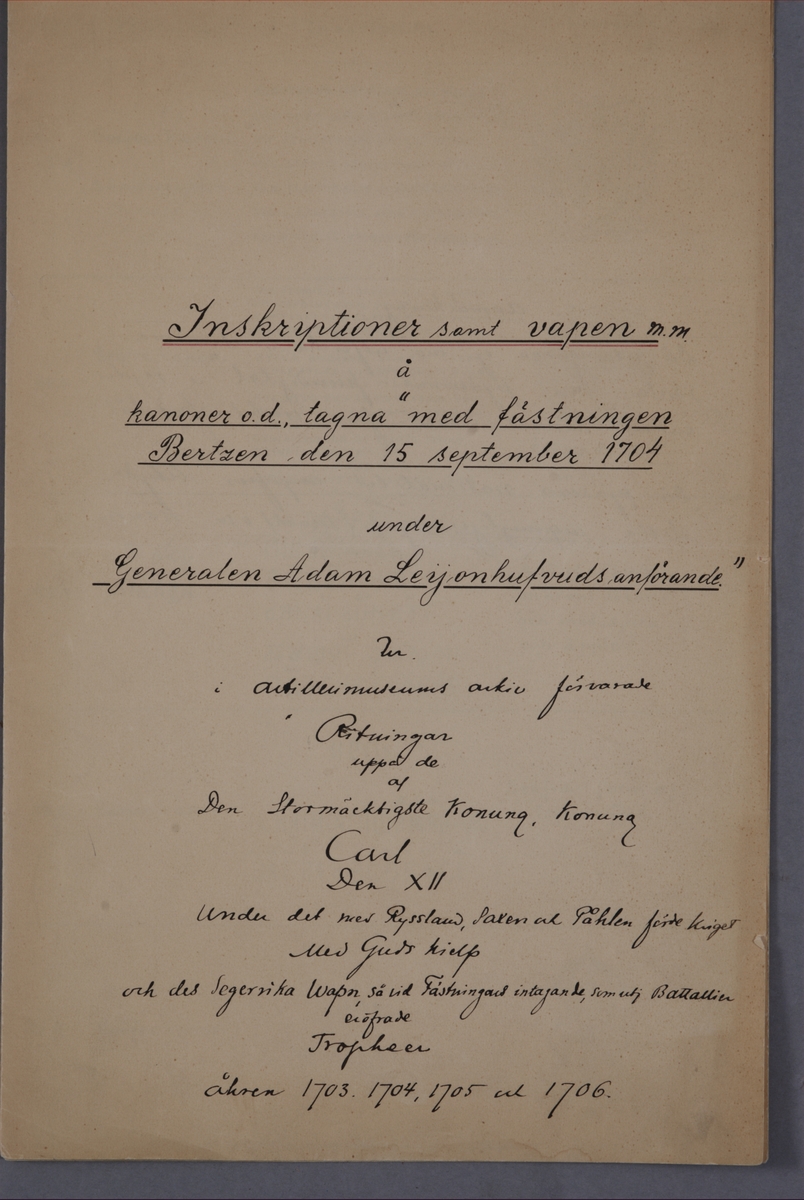 Inskriptioner samt vapen m.m.
å
kanoner o.d., "tagna med fästningen
Bertzen den 15 september 1704
under
Generalen Adam Leijonhufvuds anförande."
Ur
i artillerimuseums arkiv förvarade
"Ritningar
uppå de
af
Den Stormäcktigste Konung, Konung
Carl
Den XII
Under det med Ryssland, Saxen och Påhlen förde kriget
Med Guds hielp
och des Segerrika Wapn, så vid Fästningars intagande, som utj Battallier
eröfrade
Tropheer
åhren 1703. 1704, 1705 och 1706.